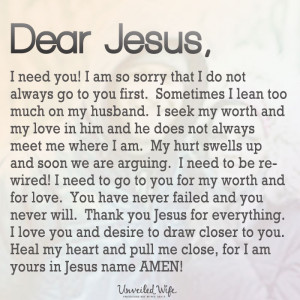 Dear Jesus,
I need you! I am so sorry that I do not
always go to you first. Sometimes I lean too
much on my husband. I seek my worth and
my love in him and he does not always
meet me where I am. My hurt swells up
and soon we are arguing. I need to be re-
wired! I need to go to you for my worth and
for love. You have never failed and you
never will. Thank you Jesus for everything.
I love you and desire to draw closer to you.
Heal my heart and pull me close, for I am
yours in Jesus name AMEN!
Unveiled Wife